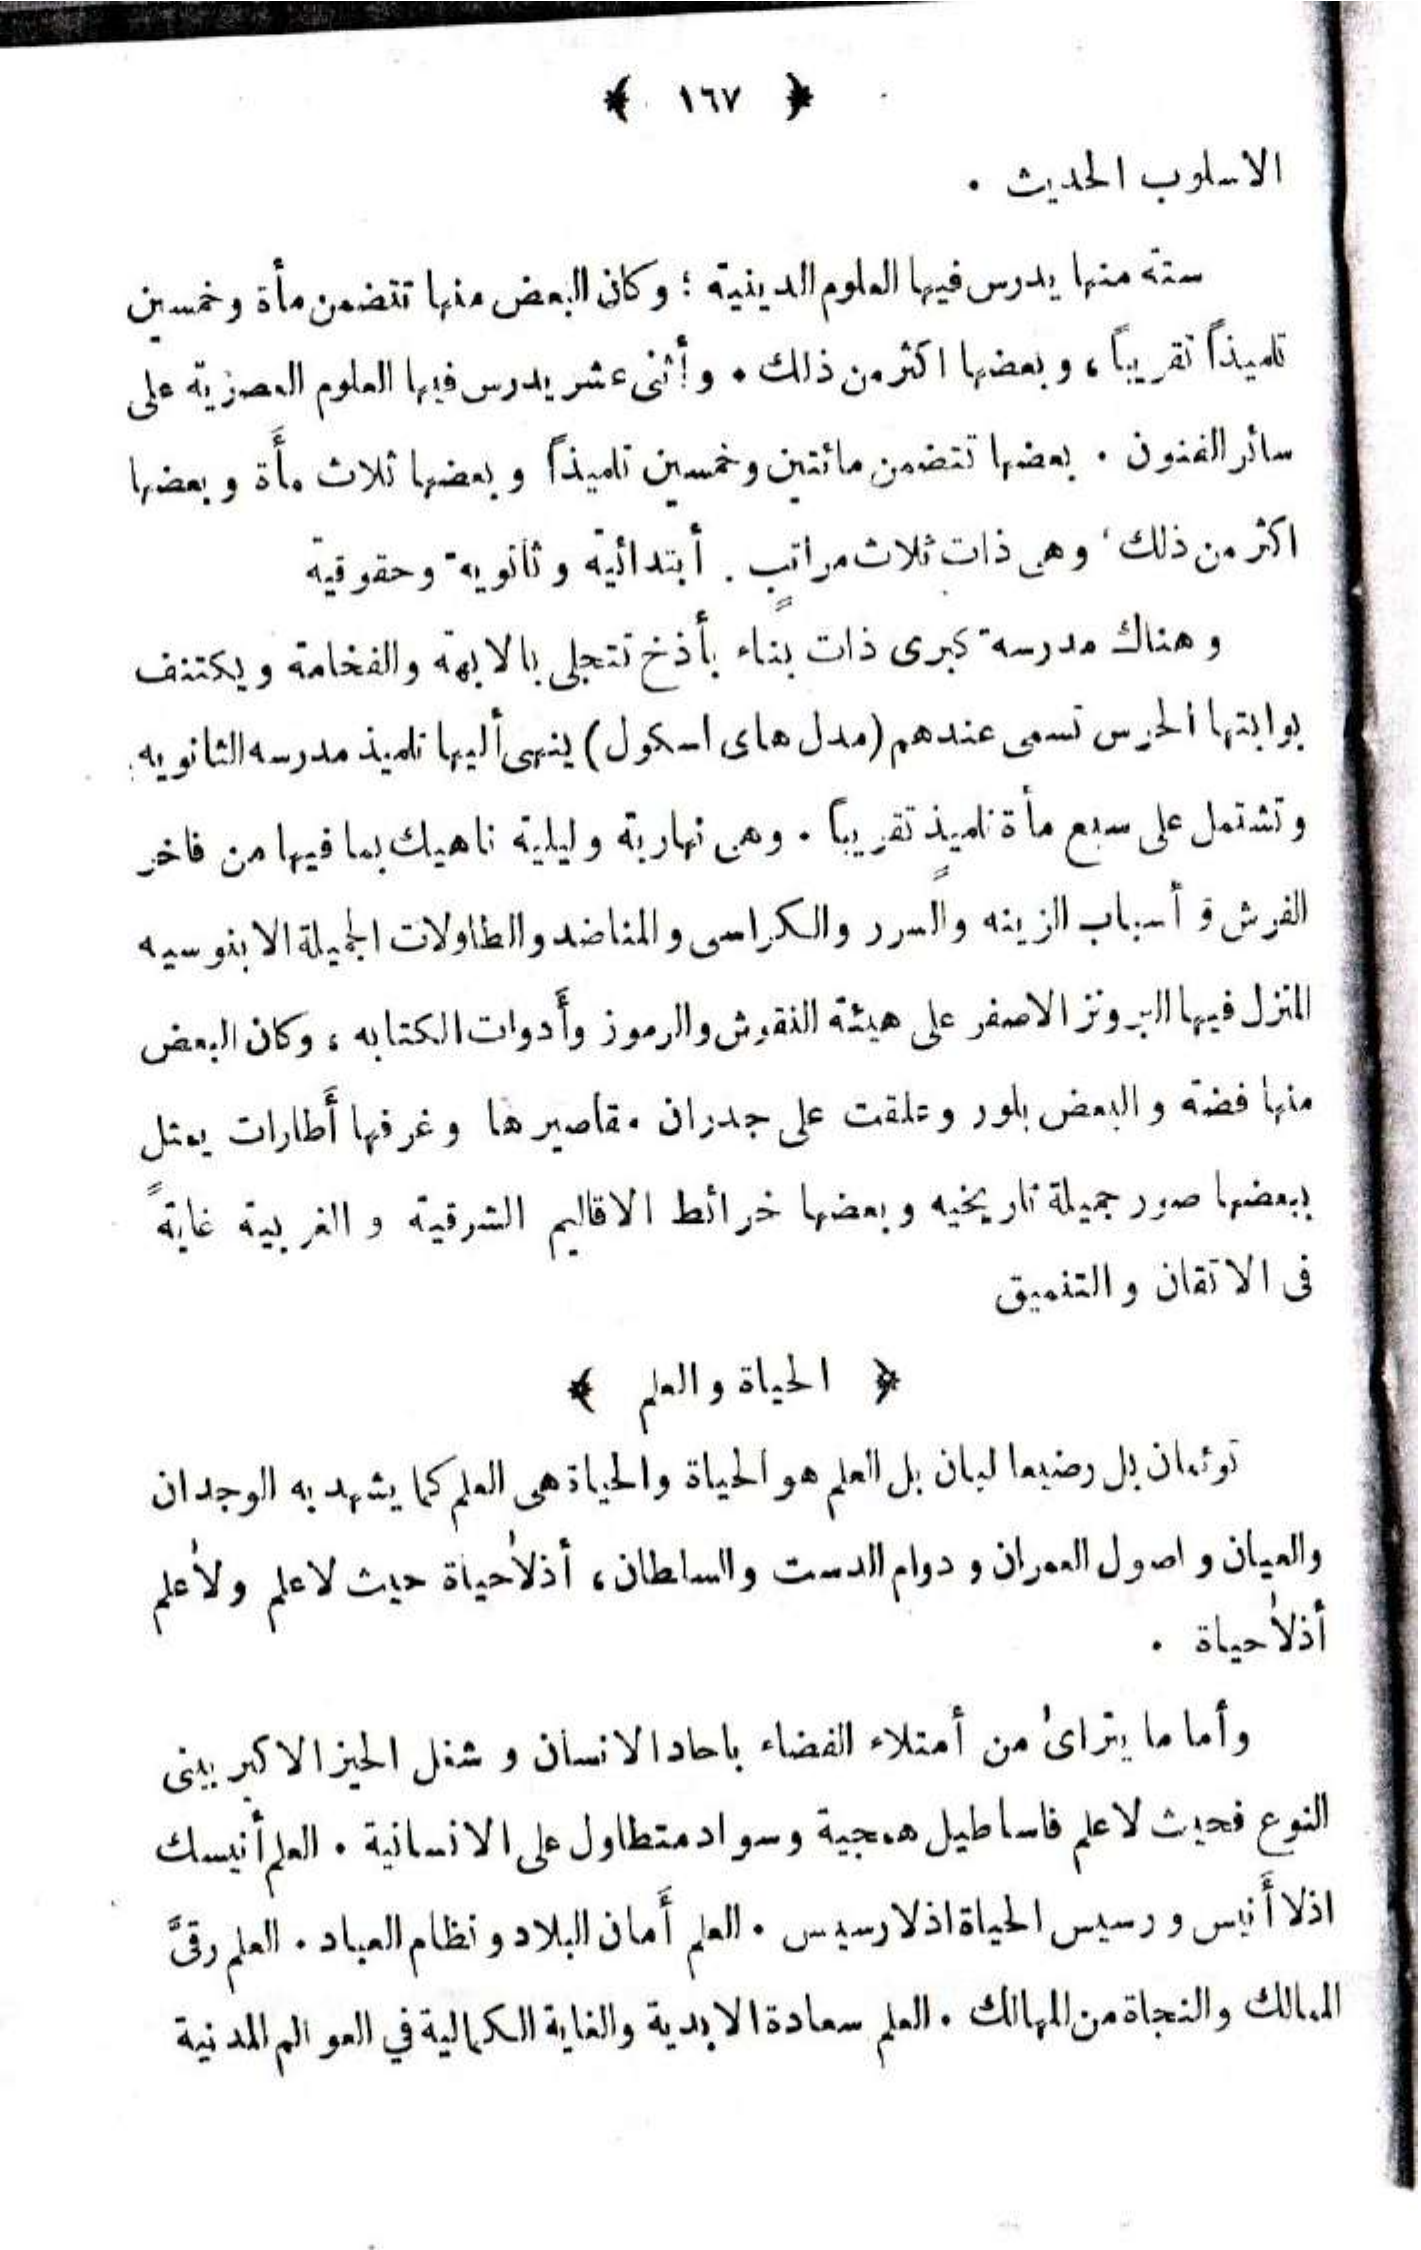 ﴿ ١٦٧ ﴾
الاسلوب الحديث .
ستة منها يدرس فيها العلوم الدينية ؛ وكان البعض منها تتضمن مأة وخمسين
تلميذاً تقريباً ، وبعضها اكثر من ذلك . وأثنى عشر يدرس فيها العلوم العصرية على
سائر الفنون . بعضها تتضمن مائتين وخمسين تلميذاً وبعضها ثلاث مأة وبعضها
اكثر من ذلك ، وهى ذات ثلاث مراتبٍ . أبتدائية وثانوية وحقوقية
وهناك مدرسة كبرى ذات بناء بأذخ تتجلى بالابهة والفخامة ويكتنف
بوابتها الحرس تسمى عندهم (مدل هاى اسكول) ينهى أليها تلميذ مدرسه الثانويه
وتشتمل على سبع مأة تلميذٍ تقريباً . وهى نهارية وليلية ناهيك بما فيها من فاخر
الفرش و أسباب الزينه والسرر والكراسى والمناضد والطاولات الجميلة الابنوسيه
المنزل فيها البرونز الاصفر على هيئة النقوش والرموز وأدوات الكتابه ، وكان البعض
منها فضة والبعض بلور وعلقت على جدران مقاصيرها وغرفها أطارات يمثل
ببعضها صور جميلة تاريخيه وبعضها خرائط الاقاليم الشرقية والغربية غايةً
فى الاتقان والتنميق
﴿ الحياة والعلم ﴾
توئمان بل رضيعا لبان بل العلم هو الحياة والحياة هى العلم كما يشهد به الوجدان
والعيان و اصول العمران و دوام الدست والسلطان ، أذلاحياة حيث لاعلم ولاعلم
أذلاحياة .
وأما ما يترائ من أمتلاء الفضاء باحاد الانسان و شغل الحيز الاكبر ببنى
النوع فحيث لاعلم فاساطيل همجية وسواد متطاول على الانسانية . العلم أنيسك
اذلا أنيس ورسيس الحياة اذلا رسيس . العلم أمان البلاد ونظام العباد . العلم رقىَّ
الممالك والنجاة من المهالك . العلم سعادة الابدية والغاية الكمالية في العوالم المدنية